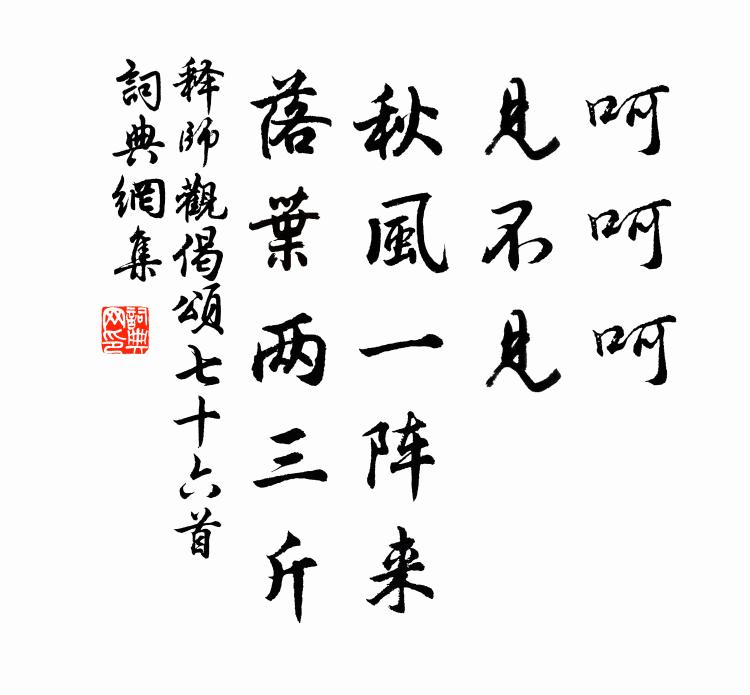 呵呵呵
見不見
秋風一阵来
落葉两三斤
释師觀偈頌七十六首
詞典網集
詞典
网印